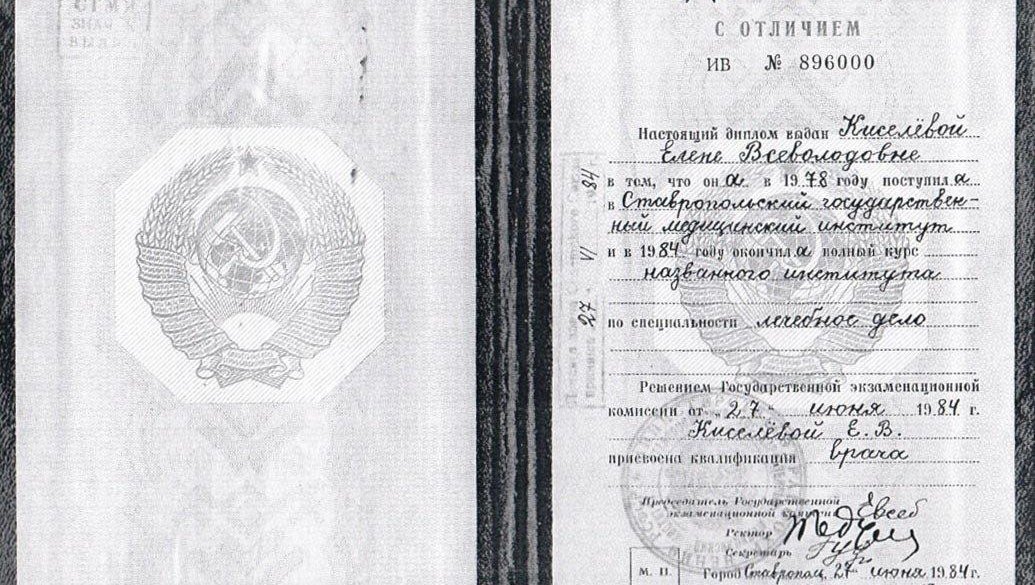 С ОТЛИЧИЕМ
ИВ № 896000
Настоящий диплом выдан Киселёвой
Елене Всеволодовне
в том, что она в 1978 году поступила
в Ставропольский государствен-
ный медицинский институт
и в 1984 году окончила полный курс
названного института
по специальности лечебное дело
Решением Государственной экзаменационной
комиссии от „27“ июня 1984 г.
Киселёвой Е. В.
присвоена квалификация врача
Председатель Государственной
экзаменационной комиссии
Ректор
Секретарь
М. П. Город Ставрополь 27 июня 1984 г.
27 VI 1984